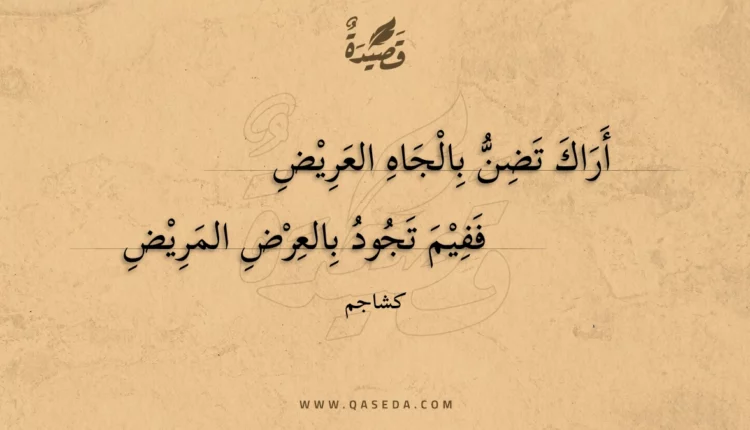 قَصِيْدَةٌ
أَرَاكَ تَضِنُّ بِالْجَاهِ العَرِيْضِ
فَفِيْمَ تَجُودُ بِالعِرْضِ المَرِيْضِ
كشاجم
WWW.QASEDA.COM